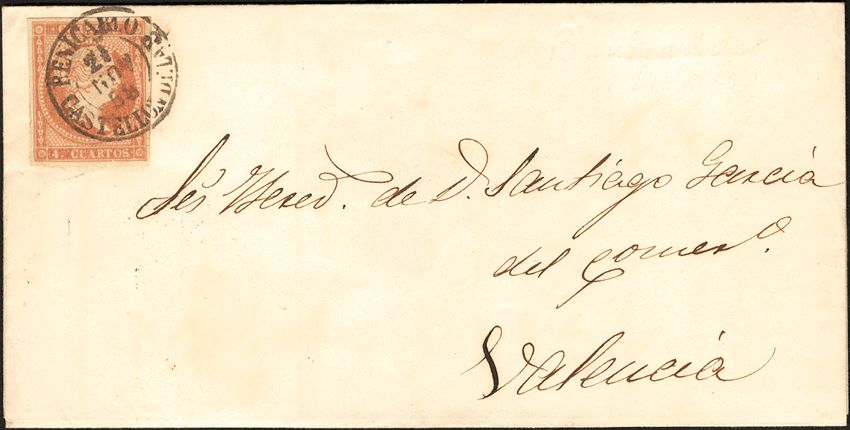 BENICARLO
21
NOV
CASTELLON
4 CUARTOS
Sēs Hered. de D. Santiago García
del comerº.
Valencia